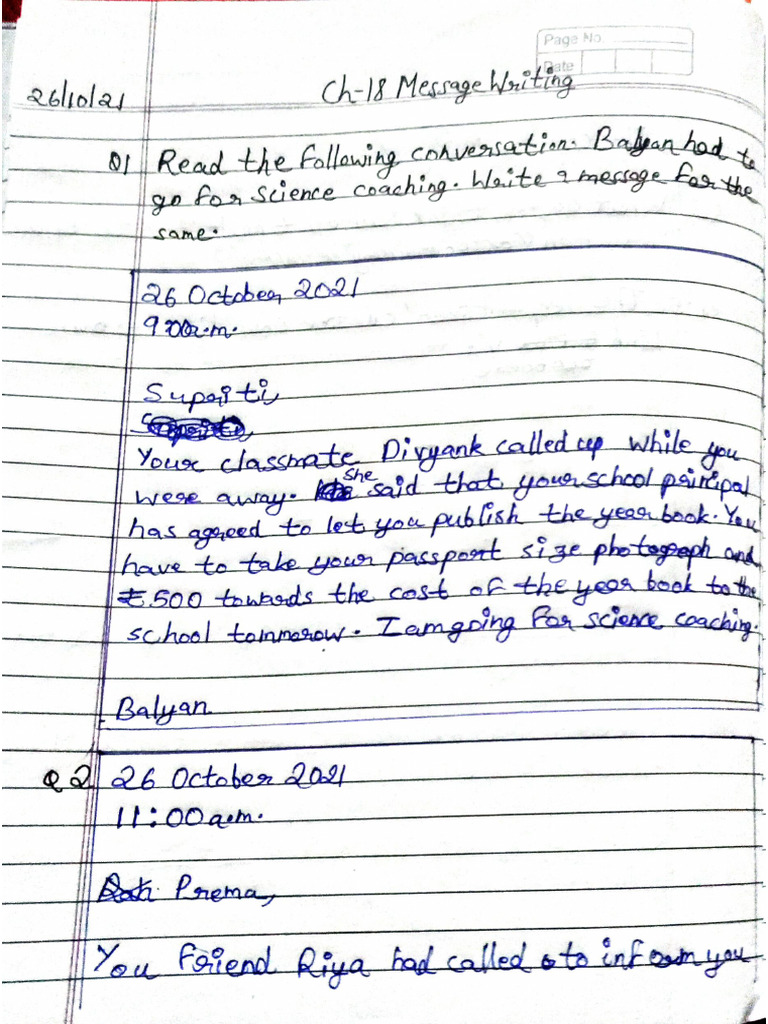 Page No.
Date
26/10/21
Ch-18 Message Writing
Q1 Read the following conversation. Balyan had to
go for science coaching. Write a message for the
same.
26 October, 2021
9:00a.m.
Supriti,
Your classmate Divyank called up while you
were away. she said that your school principal
has agreed to let you publish the year book. You
have to take your passport size photograph and
₹.500 towards the cost of the year book to the
school tommorow. I am going for science coaching.
Balyan
Q 2 26 October 2021
11:00 a.m.
Prema,
You friend Riya had called to inform you